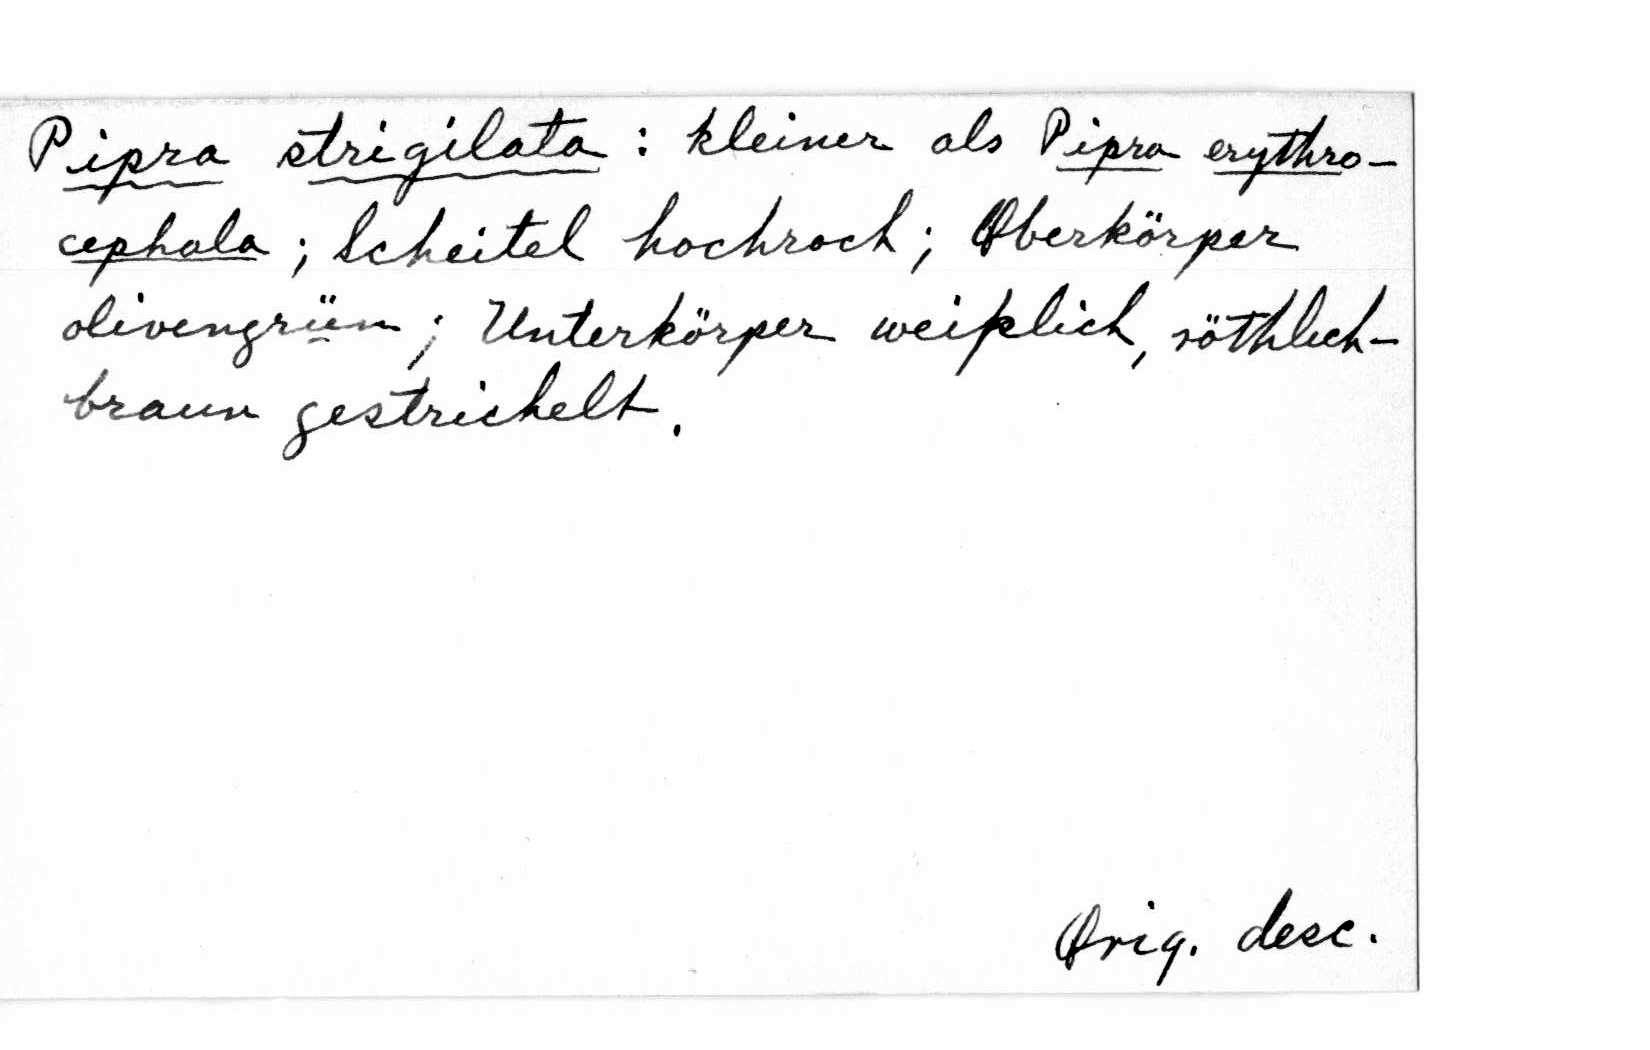 Pipra strigilata : kleiner als Pipra erythro-
cephala ; Scheitel hochroch ; Oberkörper
olivengrün ; Unterkörper weißlich, röthlich-
braun gestrichelt.
Orig. desc.